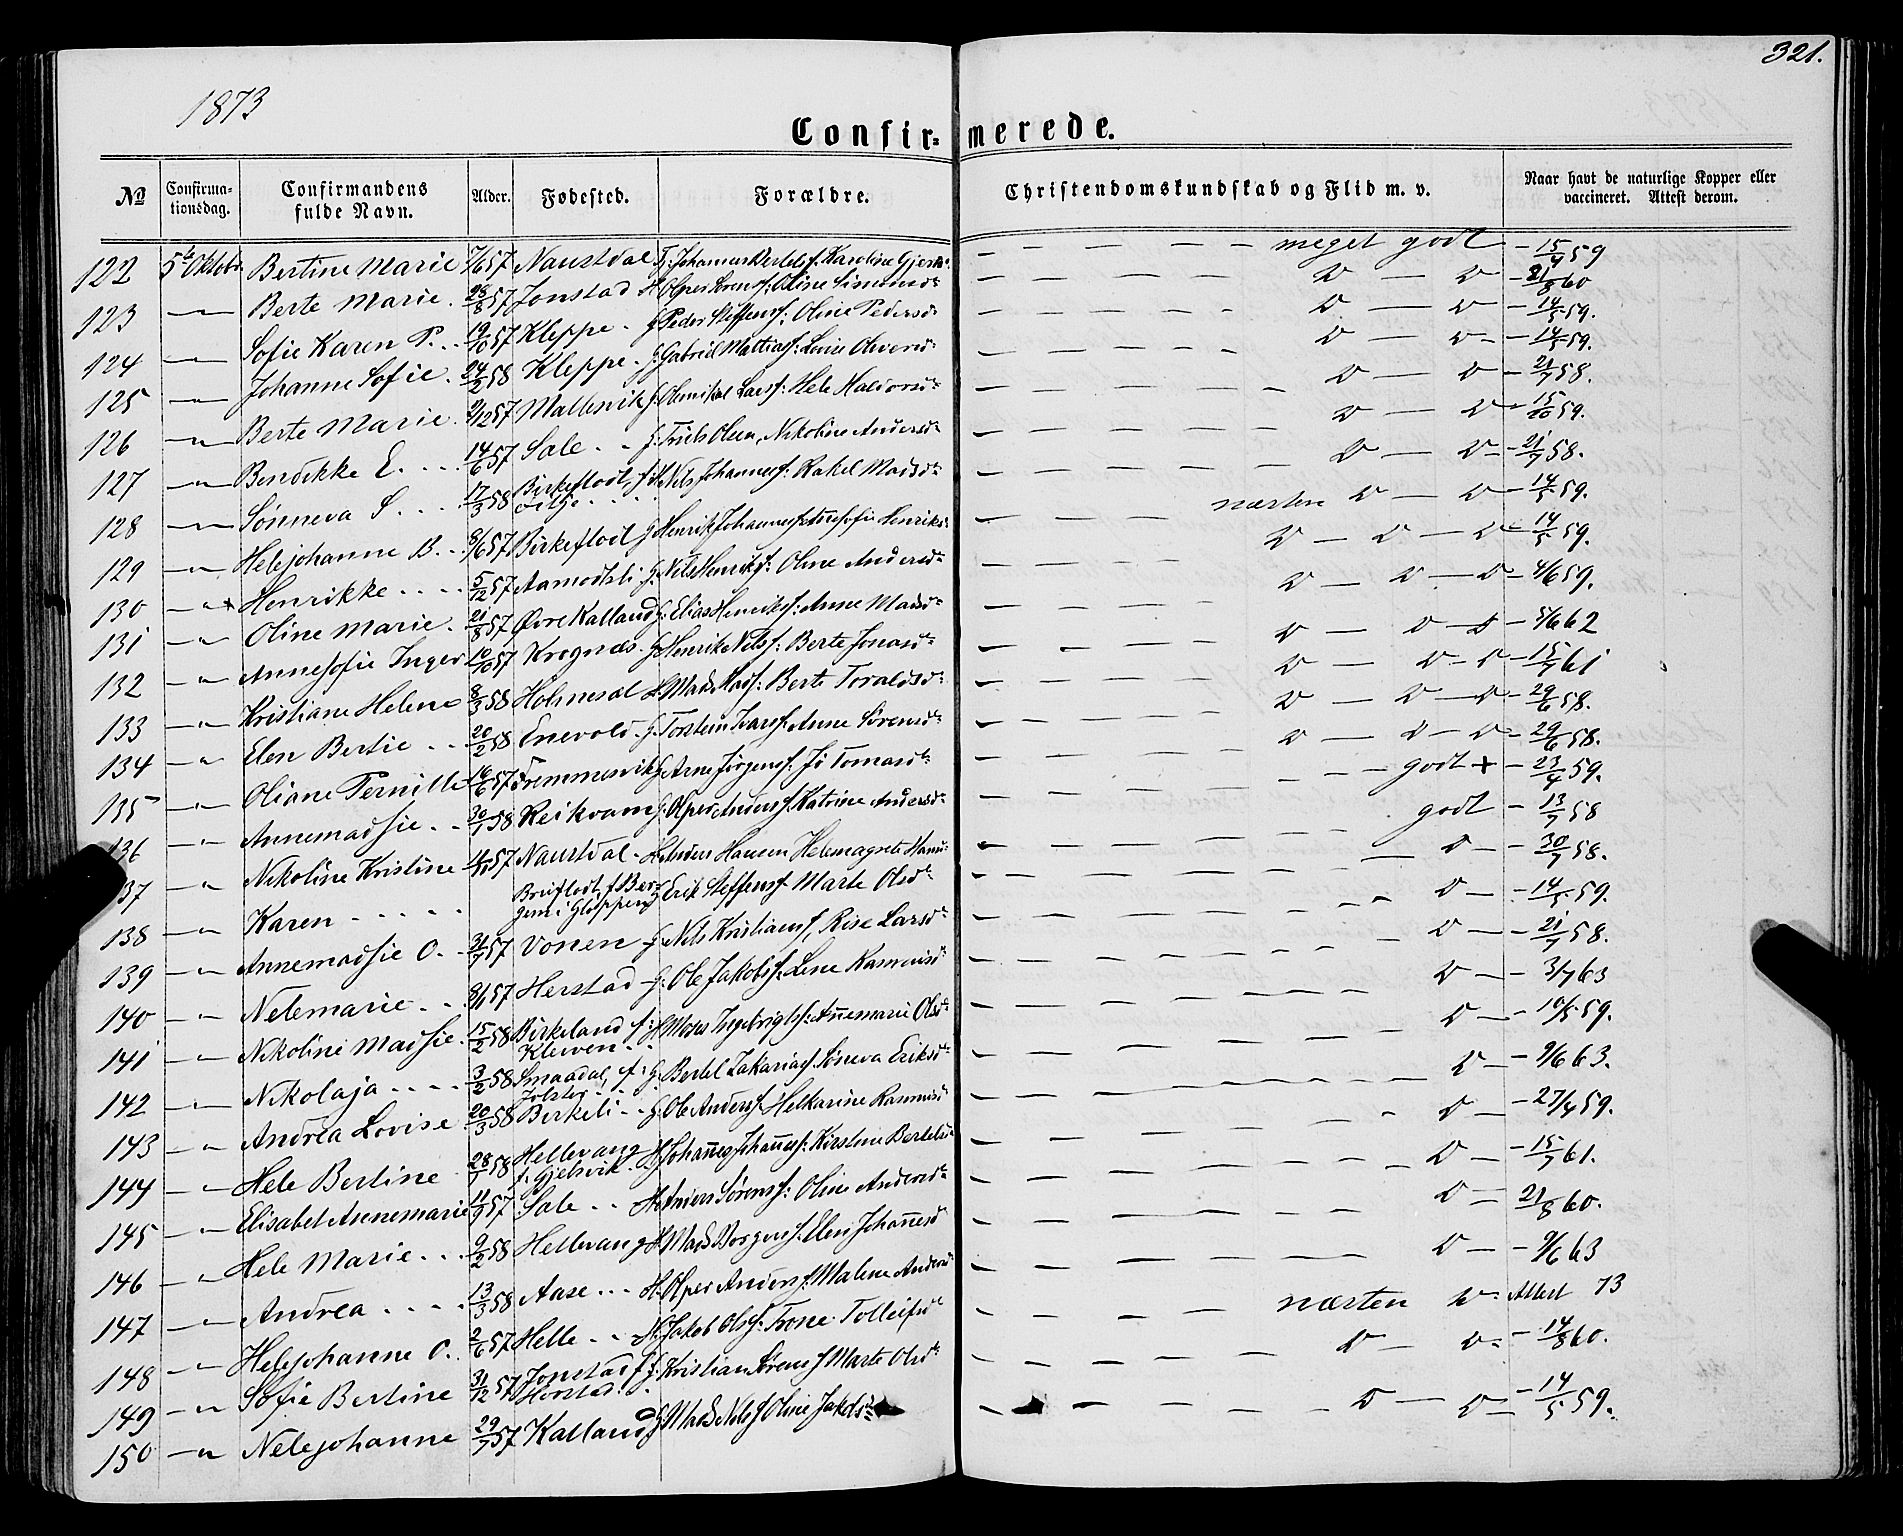 321.
1873
Confirmerede.
№ Confirmationsdag. Confirmandens fulde Navn. Alder. Fødested. Forældre. Christendomskundskab og Flid m. v. Naar havt de naturlige Kopper eller vaccineret. Attest derom.
122 5t Oktobr. Bertine Marie 7/6 57 Naustdal Johannes Bertels: Karoline meget godt 15/4 59
123 —"— Berte Marie. 28/8 57 Jonstad Olper Sørens: Oline Simonsd. D — D 21/8 60
124 —"— Sofie Karen P. 19/10 57 Kleppe. G Peder Steffens: Oline Pedersd. D — D 14/5 59.
125 —"— Johanne Sofie. 24/2 58 Kleppe. G. Gabriel Mattias: Lovise Oliversd. D — D 14/5 59.
126 —"— Berte Marie. 2/12 57 Mallesvik G. Lars: Hele Halvorsd. D — D 21/7 58.
127 —"— Bendikke E. 14/6 57 Sale. Truls Olsen, Nikoline Andersd. D — D 15/10 59.
128 —"— Sønneva S. 17/3 58 Birkeflodt, f. Nils Johannes: Rakel Madsd. D — D 21/7 58.
129 —"— Helejohanne B. 8/6 57 Birkeflod G Henrik Johannes Henriks. næsten D — D 14/5 59.
130 —"— Henrikke 5/12 57 Aamodtli G. Nils Henriks: Oline Andersd. D — D — D 14/5 59.
131 —"— Oline Marie. 21/8 57 Øvre Kalland G. Elias Henriks: Anne Madsd. D — D — D 4/6 59.
132 —"— Annesofie Inger 10/10 57 Krognæs. G Henrik Nils: Berte Jonasd. D — D — D 5/6 62
133 —"— Kristiane Helene 8/3 58 Holmesæl Mads Mads: Berte Toraldsd. D — D — D 15/7 61
134 —"— Elen Bertie 20/2 58 Enevold. G. Torstein Ivars: Anne Sørensd. D — D — D 29/6 58.
135 —"— Oliane Pernille 16/6 57 Fremmesvik G Arne Jørgens: Jo Tomasd. D — D — D 29/6 58.
136 —"— Annemadsie 30/1 58 Reikvam G. Olper Anders: Katrine Andersd. godt + 23/4 59.
137 —"— Nikoline Kristine 4/11 57 Naustdal. Anders Hansen Helemagrete godt 13/7 58
138 —"— Karen Breiflodt, f Bergem i Gloppen Erik Steffens: Marte Olsd. D 30/7 58.
139 —"— Annemadsie O. 31/7 57 Vonen G Nils Kristians, Rise Larsd. D 14/5 59.
140 —"— Nelemarie. 8/11 57 Herstad G. Ole Jakobs: Lene Rasmusd. D 21/7 58.
141 —"— Nikoline Madsie. 15/2 58 Birkeland f: Kleiven Moses Ingebrigts: Annemarie Olsd. D 3/7 63
142 —"— Nikolaja 3/2 58 Smaadal, f: Jølster G. Bertel Zakarias: Søneva Eriksd. D 10/5 59.
143 —"— Andrea Lovise. 20/3 58 Birkeli G. Ole Anders: Helkarine Rasmusd. D 9/6 63.
144 —"— Hele Bertine 28/1 58 Hellevang f. Gjelsvik. Johannes Johannes: Kirstine Bertelsd. D 27/4 59.
145 —"— Elisabet Annemarie 11/9 57 Sale H. Anders Sørens: Oline Andersd. D 15/7 61.
146 —"— Hele Marie 9/2 58 Hellevang H. Mads Borgers: Elen Johannesd. D 21/8 60.
147 —"— Andrea 13/3 58 Aase H. Olper Anders: Malene Andersd. D 9/6 63
148 —"— Helejohanne O. 2/6 57 Helle H. Jakob Ols: Trone Tolleifsd. næsten D Attest 73
149 —"— Sofie Bertine 31/12 57 Jonstad f. Horstad. G. Kristian Sørens: Marte Olsd. D — D 14/8 60.
150 —"— Nelejohanne 29/7 57 Kalland G Mads Nils: Oline Jakobsd. D — D 14/5 59.